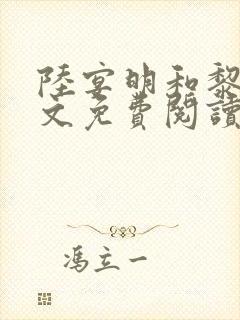 陸宴明和黎
文免費閱讀
馮立一